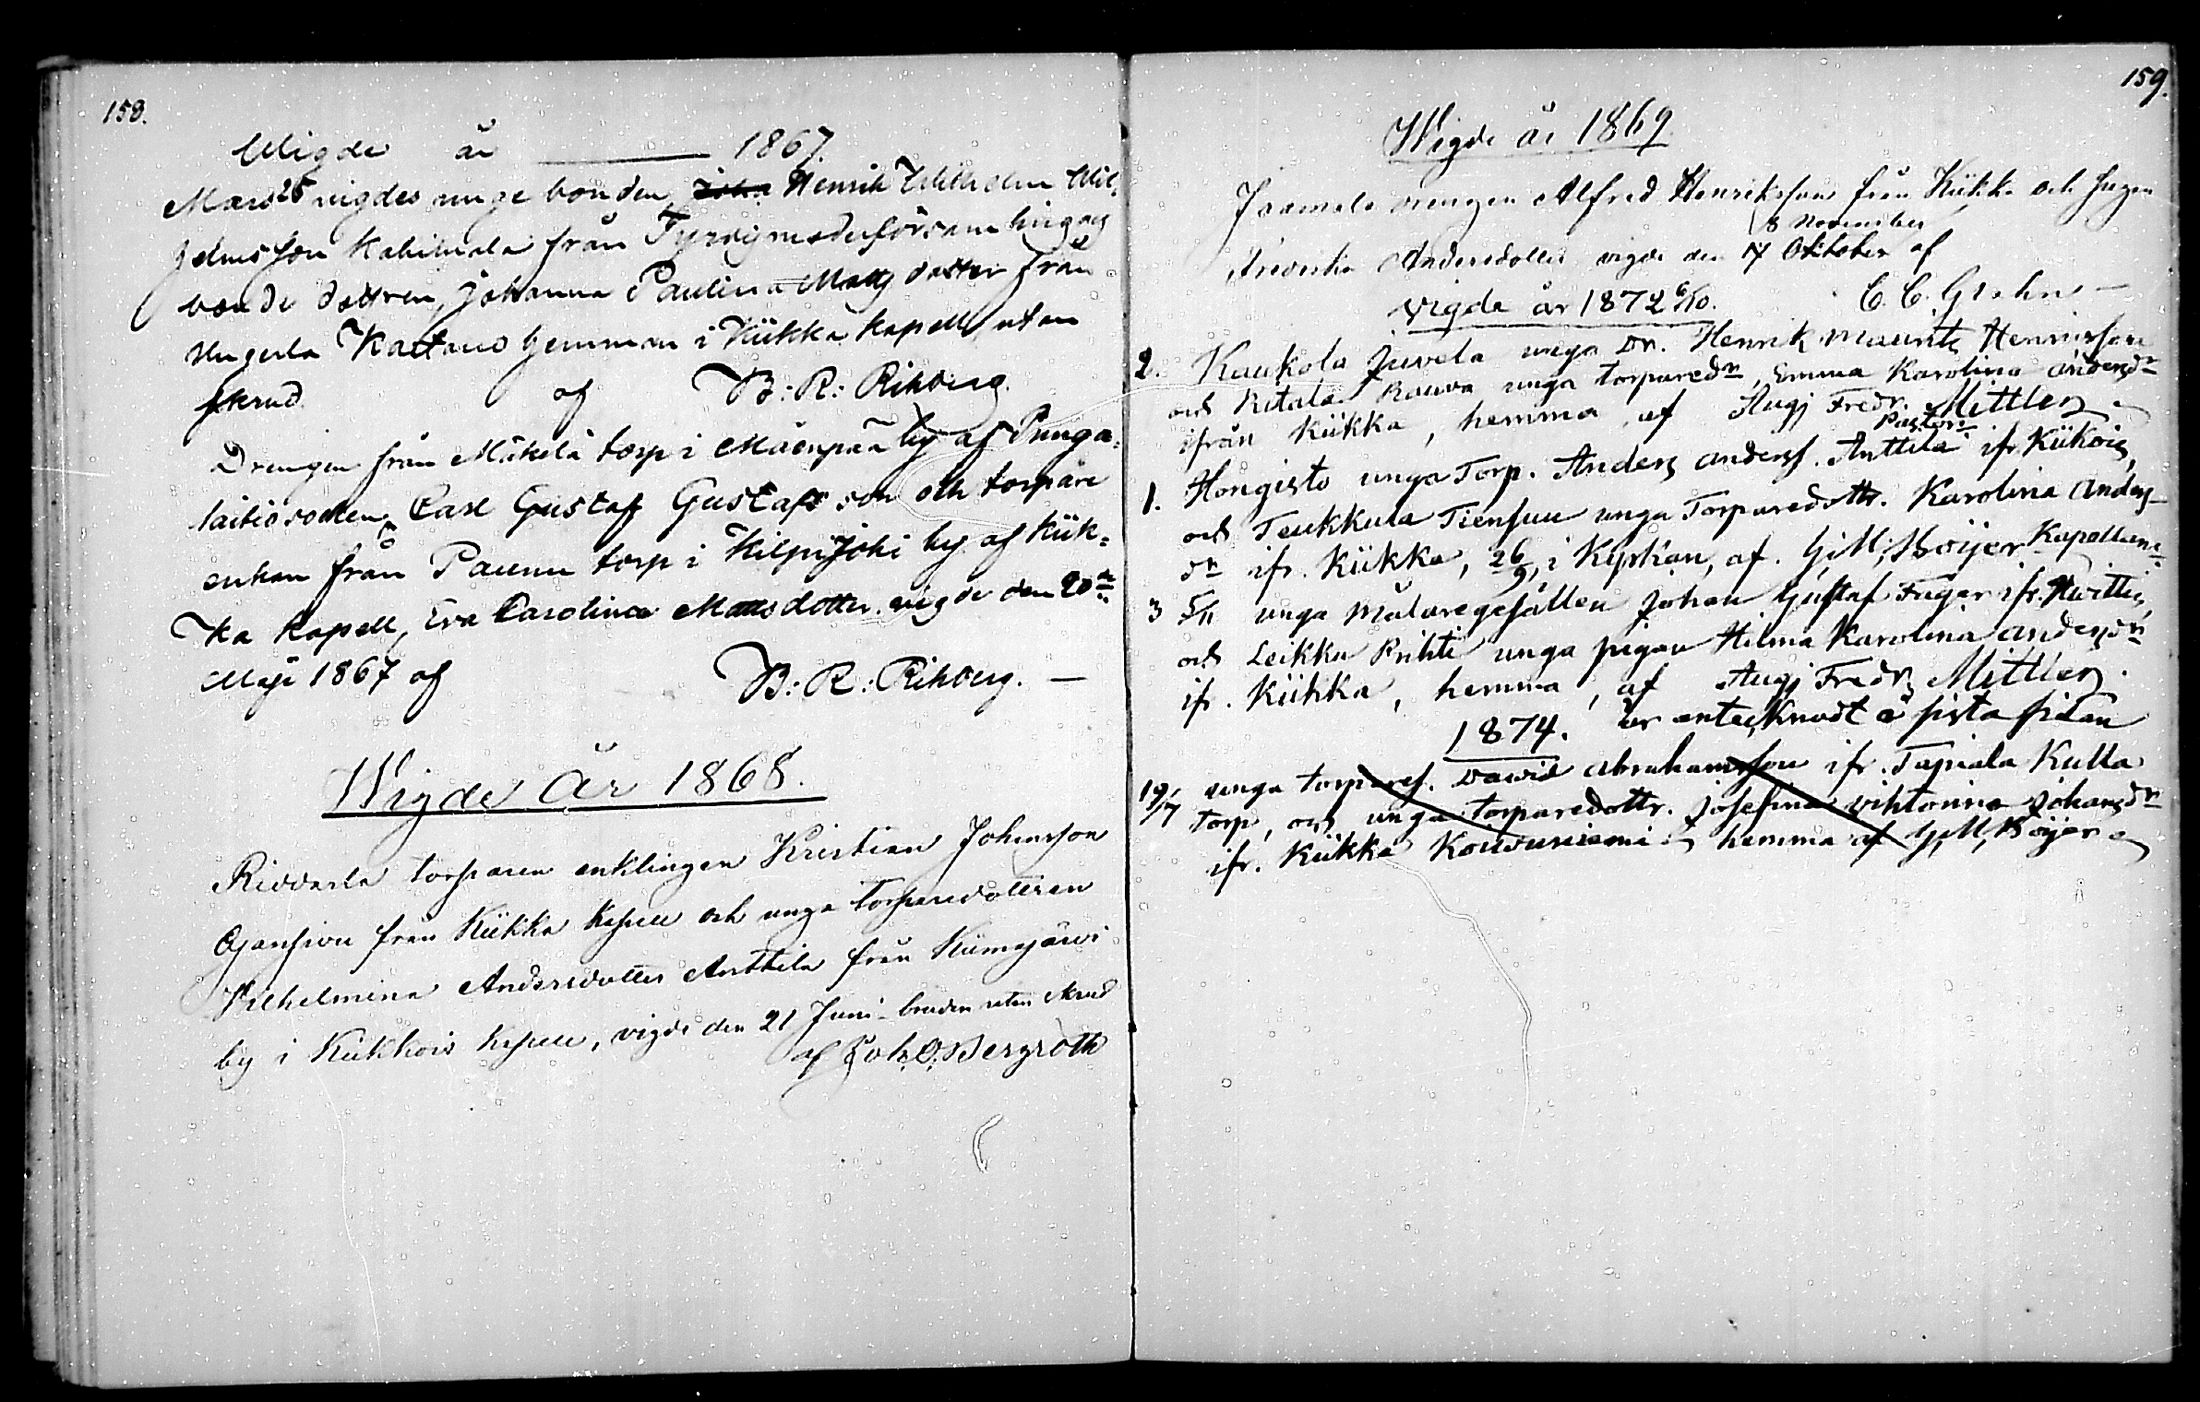 158.
Wigde år 1867.
Mars 25 vigdes unge bonden Joha Henrik Wilhelm Wil,
helmsson Kahilala från Tyrvis moderförsamling och
bonde dottren, Johanna Paulina Matts dotter från
Kaltano hemman i Kiikka kapell, utan
skrud. af B: R: Rihberg.
Drengen från Mäkelä torp i Mäenpää by af Punga,
laitio socken, Carl Gustaf Gustafsson och torpare
enkan från Paunu torp i Kilpijoki by af Kiik,
ka kapell, Eva Carolina Mattsdotter vigde den 20de
Maji 1867 af B: R: Rihberg. —
Wigde År 1868.
torparen enklingen Kristian Johansson
Ojansivu från Kiikka kapell och unga torparedottren
Wilhelmina Andersdotter Anttila från Kiimajärvi
by i Kiikkois kapell, vigde den 21 Juni - bruden utan skrud
af Joh. O. Bergroth
159.
Wigde år 1869
Jaamala drengen Alfred Henriksson från Kiikka och pigan
8 November
Fredrika Andersdotter vigde den 17 Oktober af
C. C. Grehn —
Vigde år 1872 6/10.
2. Kaukola Juvela unga Dr. Henrik Maurits Henriksson
och Ritala Rauva unga torparedr, Emma Karolina andersdr
ifrån Kiikka, hemma, af Aug; Fredr. Mittler
Pastor:
1. Hongisto unga Torp. Anders andersf. Anttila ifr. Kiikois,
och Teukkula Tiensuu unga Torparedottr. Karolina anders-
dr ifr. Kiikka, 26/9, i Kyrkan, af. G, M, Höijer Kapellan:
3 5/11 unga målaregesällen Johan Gustaf Friger ifr. Hvittis,
och Leikku Prihti unga pigan Hilma Karolina andersdr
ifr. Kiikka, hemma, af Aug; Fredr, Mittler.
1874. är antecknadt å sista sidan
19/7 unga torparef. David Abrahamsson ifr. Tapiala Kulla
torp, och unga torparedottr. Josefina Vihtorina Johansdr
ifr. Kiikka Koivuniemi hemma af G, M, Höijer